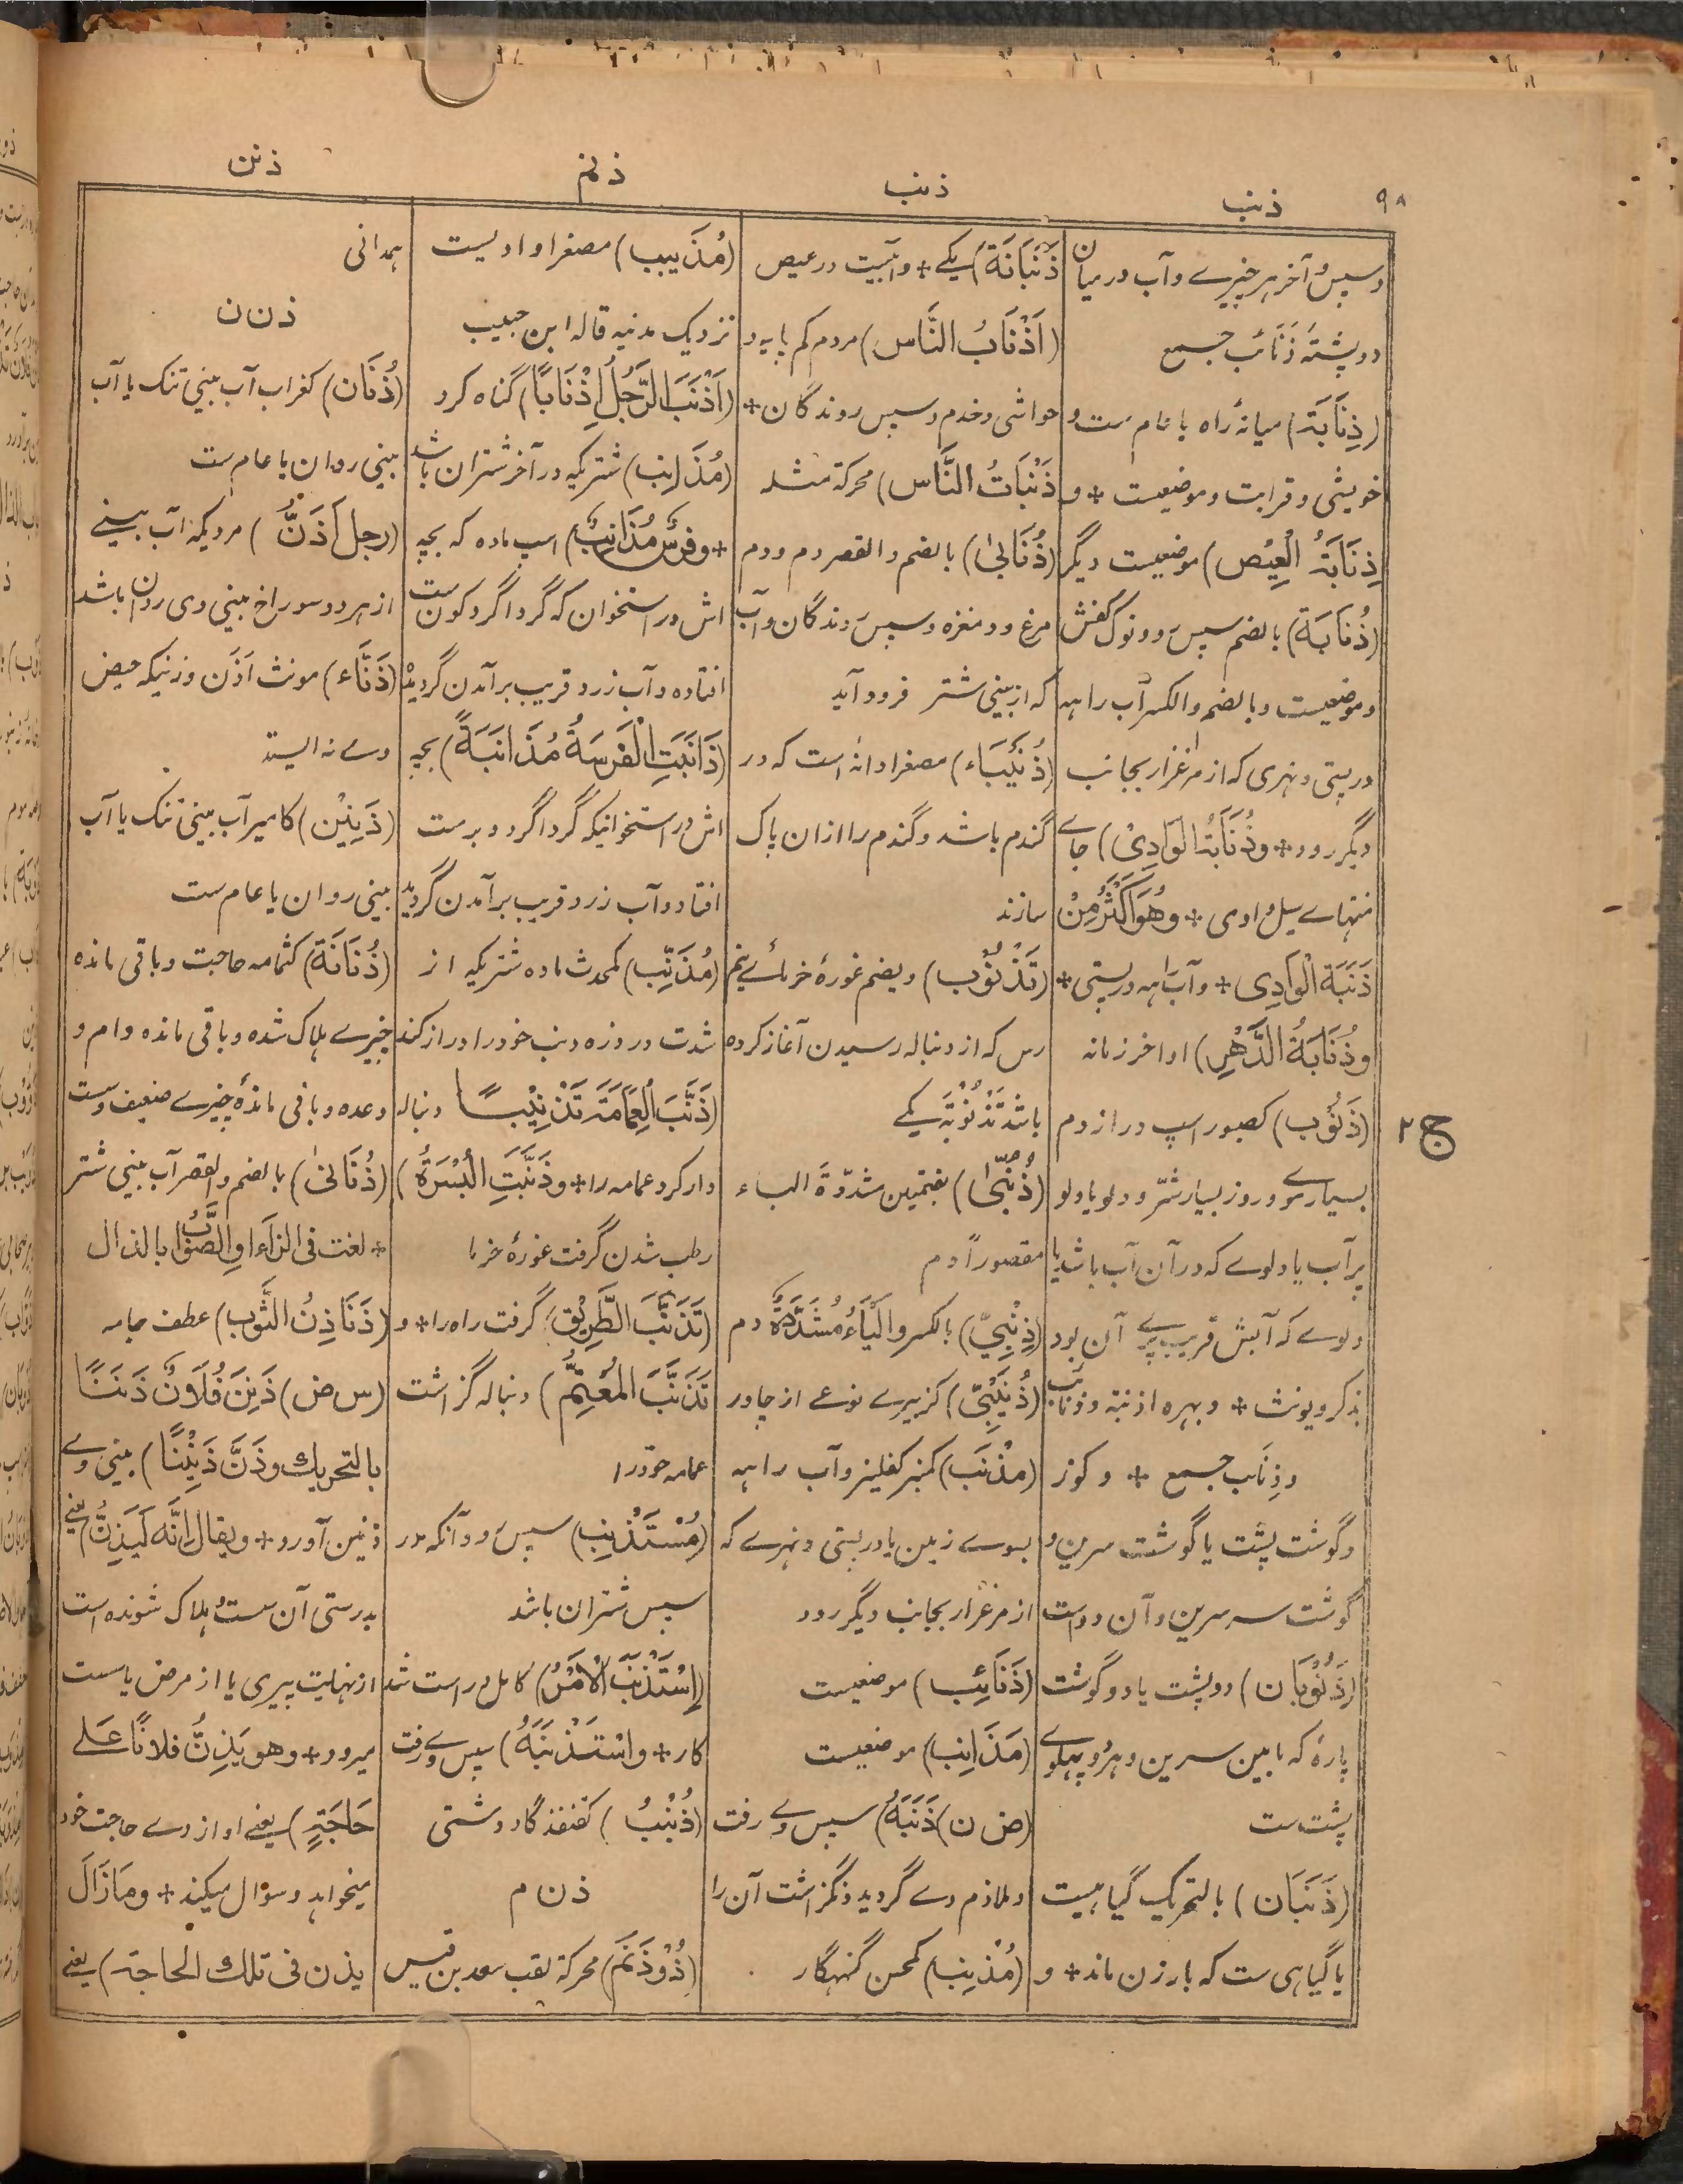 ۹۸
ذنب
ذنب
ذنم
ذنن
و سپس و آخر هر چیزے و آب در میان
دو پشته ذَنَائب جمع
(ذِنَابَة) میانۂ راه یا عام ست و
خویشی و قرابت و موضعیست + و
ذِنَابَةُ الْعِیْص) موضعیست دیگر
(ذُنَابَة) بالضم سپس رو و نوک کفش
و موضعیست و بالضم و الکسر آب راهه
در پستی و نهری که از مرغزار بجانب
دیگر رود + وذُنَابَةُ الْوَادِیْ) جاے
منتهاے سیل وادی + وهُوَ اَکْثَرُ مِنْ
ذَنَبَة الْوَادِی + و آب راهه در پستی +
وذُنَابَةُ الدَّهْرِ) اواخر زمانه
(ذَنُوْب) کصبور اسپ دراز دم
بسیارے مو و روز بسیار شرّ و دلو یا دلو
پر آب یا دلوے که در آن آب باشد یا
دلوے که آبش قریب پرے آن بود
یذکر ویونث + و بهره اذنبة و ذنائب
و ذِنَاب جمع + و گوز
و گوشت پشت یا گوشت سرین و
گوشت سر سرین و آن دو است
(ذَنُوْبَان) دو پشت یا دو گوشت
پارۂ که مابین سرین و هر دو پهلوے
پشت ست
(ذَنَبَان) بالتحریک گیاهیست
یا گیاهی ست که بارزن ماند + و
ج ۲
ذَنَبَانَة) یکے + و آبیست در عیص
(اَذْنَابُ النَّاس) مردم کم پایه و
حواشی و خدم و سپس روندگان +
ذَنَبَاتُ النَّاس) محرکة مثله
(ذُنَابیٰ) بالضم و القصر دم و دم
مرغ و دمغزه و سپس روندگان و آب
که از بینی شتر فرود آید
(ذُنَیْبَاء) مصغرا دانه است که در
گندم باشد و گندم را ازان پاک
سازند
(تَذْنُوْب) و یضم غورۂ خرمائے نیم
رس که از دنباله رسیدن آغاز کرده
باشد تَذْنُوْبَة یکے
(ذُنُبّیٰ) بضمتین مشدّدة الباء
مقصوراً دم
(ذِنِبِیّ) بالکسر والْیَاءُ مُشَدَّدَةٌ دم
(ذُنَیْبِیّ) کزبیرے نوعے از چادر
(مِذْنَب) کمنبر کفلیز و آب راهه
بسوے زمین یا در پستی و نهرے که
از مرغزار بجانب دیگر رود
(ذَنَائِب) موضعیست
(مَذَانِب) موضعیست
(ض ن) ذَنَبَهُ) سپس وے رفت
و ملازم وے گردید و نگزاشت آن را
(مُذْنِب) کمحسن گنهگار
(مُذَیْنِب) مصغرا وادیست
نزدیک مدینه قاله ابن حبیب
(اَذْنَبَ الرَّجُلُ اِذْنَابًا) گناه کرد
(مُذَانِب) شتریکه در آخر شتران باشد
+ وفَرَسٌ مُذَانِبٌ) اسپ ماده که بچه
اش در استخوان که گرداگرد کون ست
افتاده و آب زرد قریب برآمدن گردید
(ذَانَبَتِ الْفَرَسَةُ مُذَانَبَةً) بچه
اش در استخوانیکه گرداگرد دبر ست
افتاد و آب زرد قریب برآمدن گردید
(مُذَنِّب) کمحدث ماده شتریکه از
شدت درد زه دنب خود را دراز کند
(ذَنَّبَ الْعِمَامَةَ تَذْنِیْبًا) دنباله
دار کرد عمامه را + وذَنَّبَتِ الْبُسْرَةُ)
رطب شدن گرفت غورۂ خرما
(تَذَنَّبَ الطَّرِیْقَ) گرفت راه را + و
تَذَنَّبَ الْمُعْتَمُّ) دنباله گزاشت
عمامه خود را
(مُسْتَذْنِب) سپس رو و آنکه در
سپس شتران باشد
(اِسْتَذْنَبَ الْاَمْرُ) کامل و راست شد
کار + واسْتَذْنَبَهُ) سپس وے رفت
(ذُنْبُبُ) کقنفذ گاو دشتی
ذ ن م
(ذُوْ ذَنَم) محرکة لقب سعد بن قیس
همدانی
ذ ن ن
(ذُنَان) کغراب آب بینی تنک یا آب
بینی روان یا عام ست
(رجل اَذَنُّ) مردیکه آب بینے
از هر دو سوراخ بینی وی روان باشد
(ذَنَّاء) مونث اَذَن و زنیکه حیض
وے نه ایستد
(ذَنِیْن) کامیر آب بینی تنک یا آب
بینی روان یا عام ست
(ذُنَانَة) کثمامه حاجت و باقی مانده
چیزے هلاک شده و باقی مانده وام و
وعده و باقی ماندۂ چیزے ضعیف و سست
(ذُنَانیٰ) بالضم والقصر آب بینی شتر
+ لغت فی الزاء او الصَّوَابُ بالذال
(ذَنَاذِنُ الثَّوب) عطف جامه
(س ض) ذَنِنَ فُلَانٌ ذَنَنًا
بالتحریك وذَنَّ ذَنِیْنًا) بینی وے
ذنین آورد + ویقال اِنَّه لَیَذِنُّ یعنے
بدرستی آن سست و هلاک شونده است
از نهایت پیری یا از مرض یا سست
میرود + وهو یَذِنُّ فلانًا عَلے
حَاجَةٍ) یعنے او از وے حاجت خود
میخواهد و سؤال میکند + ومَازَالَ
یذن فی تلك الحاجة) یعنے